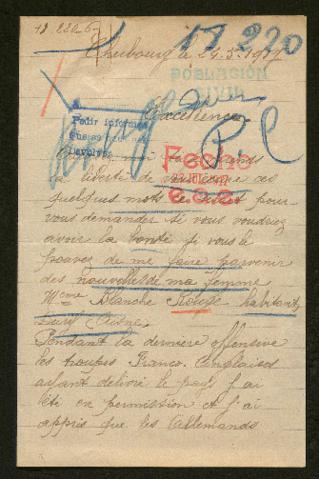 18.220-6
18220
Cherbourg le 24.5.1917
POBLACIÓN
CIVIL
Excellence
Pedir informes
Devolver
P.C
Fecho
liberté de vous écrire ces
quelques mots pour
vous demander si vous voudriez
avoir la bonté si vous le
pouvez de me faire parvenir
des nouvelles de ma femme
Mme Blanche habitant
Pendant la dernière offensive
les troupes Franco. Anglaises
ayant délivré le pays j'ai
été en permission et j'ai
appris que les Allemands